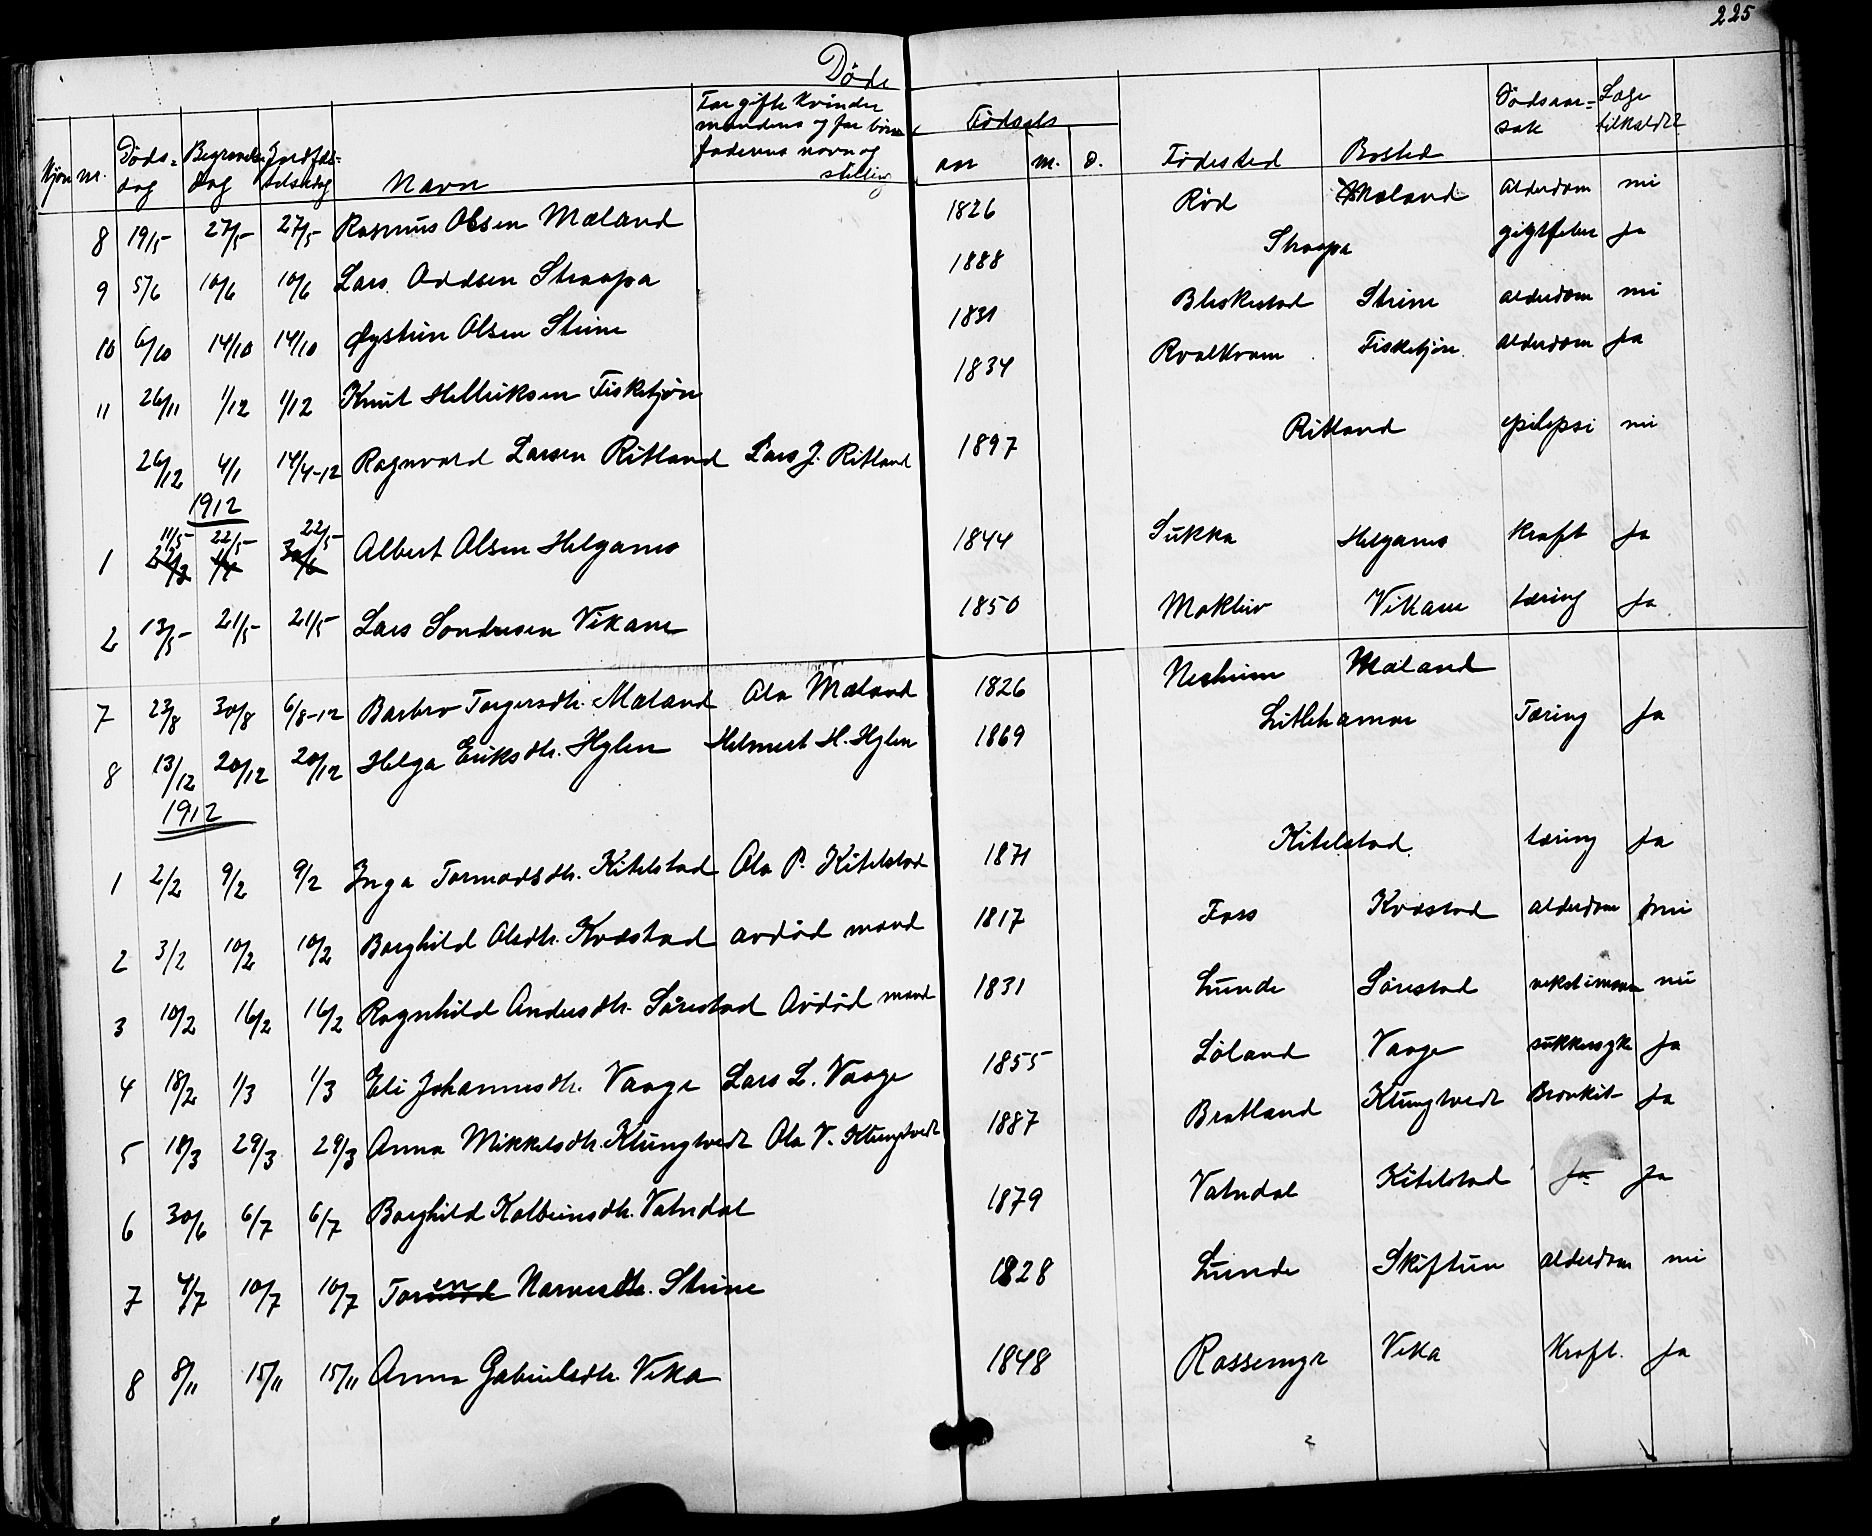 225
Døde
Kjøn nr. Døds-dag Begravelsesdag Jordfæstelsesdag Navn For gifte kvinder mandens og for børn faderens navn og stilling Fødsels aar m. d. Fødested Bosted Dødsaarsak Læge tilkaldt
8 19/5 27/5 27/5 Rasmus Olsen Mæland 1826 Rød Mæland Alderdom nei
9 5/6 10/6 10/6 Lars Oddsen Straapa 1888 Straapa gigtfeber Ja
10 6/10 14/10 14/10 Øystein Olsen Steine 1831 Bleskestad Steine alderdom nei
11 26/11 1/12 1/12 Knut Helleiksen Fisketjøn 1834 Roalkvam Fisketjøn alderdom Ja
26/12 4/1 14/4-12 Ragnvald Larsen Ritland Lars J. Ritland 1897 Ritland epilepsi nei
1912
11/5 22/5 22/5
1 22/3 30/6 Albert Olsen Helganes 1844 Sukka Helganes kræft Ja
2 13/5 21/5 21/5 Lars Sondresen Vikane 1850 Mokleiv Vikane tæring Ja
7 23/8 30/8 6/8-12 Barbro Torgersdtr. Mæland Ola Mæland 1826 Nesheim Mæland
8 13/12 20/12 20/12 Helga Eriksdtr. Hylen Helmert H. Hylen 1869 Litlehamar Tæring Ja
1912
1 2/2 9/2 9/2 Inga Tormodsdtr. Kitelstad Ola P. Kitelstad 1871 Kitelstad tæring Ja
2 3/2 10/2 10/2 Borghild Olsdtr. Kvæstad avdød mand 1817 Foss Kvæstad alderdom nei
3 10/2 16/2 16/2 Ragnhild Andersdtr. Sørestad Avdød mand 1831 Lunde Sørestad nei
4 18/2 1/3 1/3 Eli Johannesdtr. Vaage Lars L. Vaage 1855 Løland Vaage sukkersyke Ja
5 18/3 29/3 29/3 Anna Mikkelsdtr. Klungtvedt Ola V. Klungtvedt 1887 Bratland Klungtvedt Bronkit- Ja
6 30/6 6/7 6/7 Borghild Kolbeinsdtr. Vatndal 1879 Vatndal Kitelstad Ja Ja
7 4/7 10/7 10/7 Toren Narvesdtr. Steine 1828 Lunde Skiftun alderdom nei
8 8/11 15/11 15/11 Anna Gabrielsdtr. Vika 1848 Rossemyr Vika Kræft. Ja